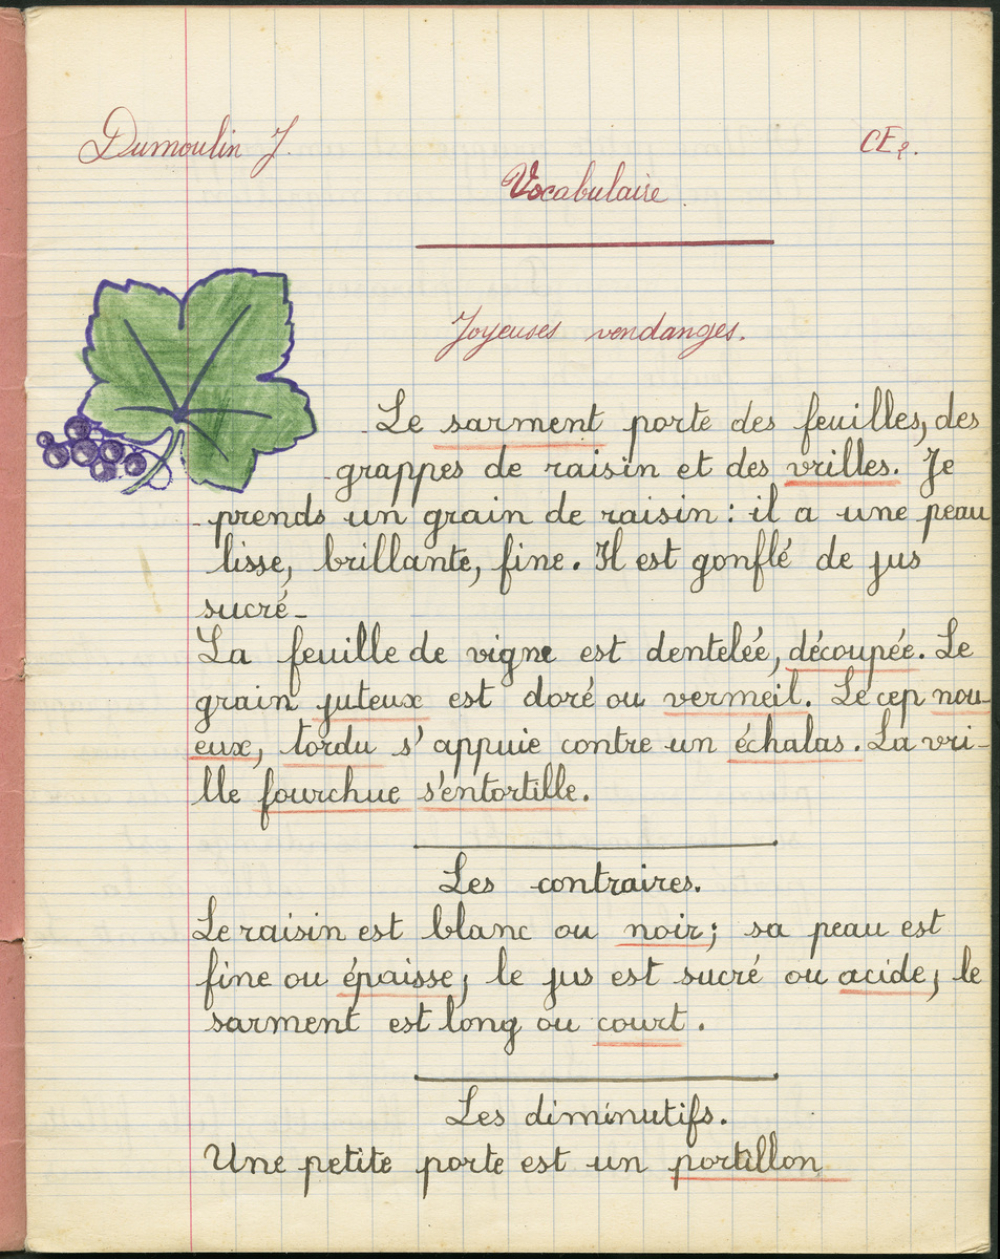 Dumoulin J. CE2.
Vocabulaire
Joyeuses vendanges.
Le sarment porte des feuilles, des
grappes de raisin et des vrilles. Je
prends un grain de raisin : il a une peau
lisse, brillante, fine. Il est gonflé de jus
sucré.
La feuille de vigne est dentelée, découpée. Le
grain juteux est doré ou vermeil. Le cep nou-
eux, tordu s'appuie contre un échalas. La vri-
lle fourchue s'entortille.
Les contraires.
Le raisin est blanc ou noir ; sa peau est
fine ou épaisse, le jus est sucré ou acide, le
sarment est long ou court.
Les diminutifs.
Une petite porte est un portillon